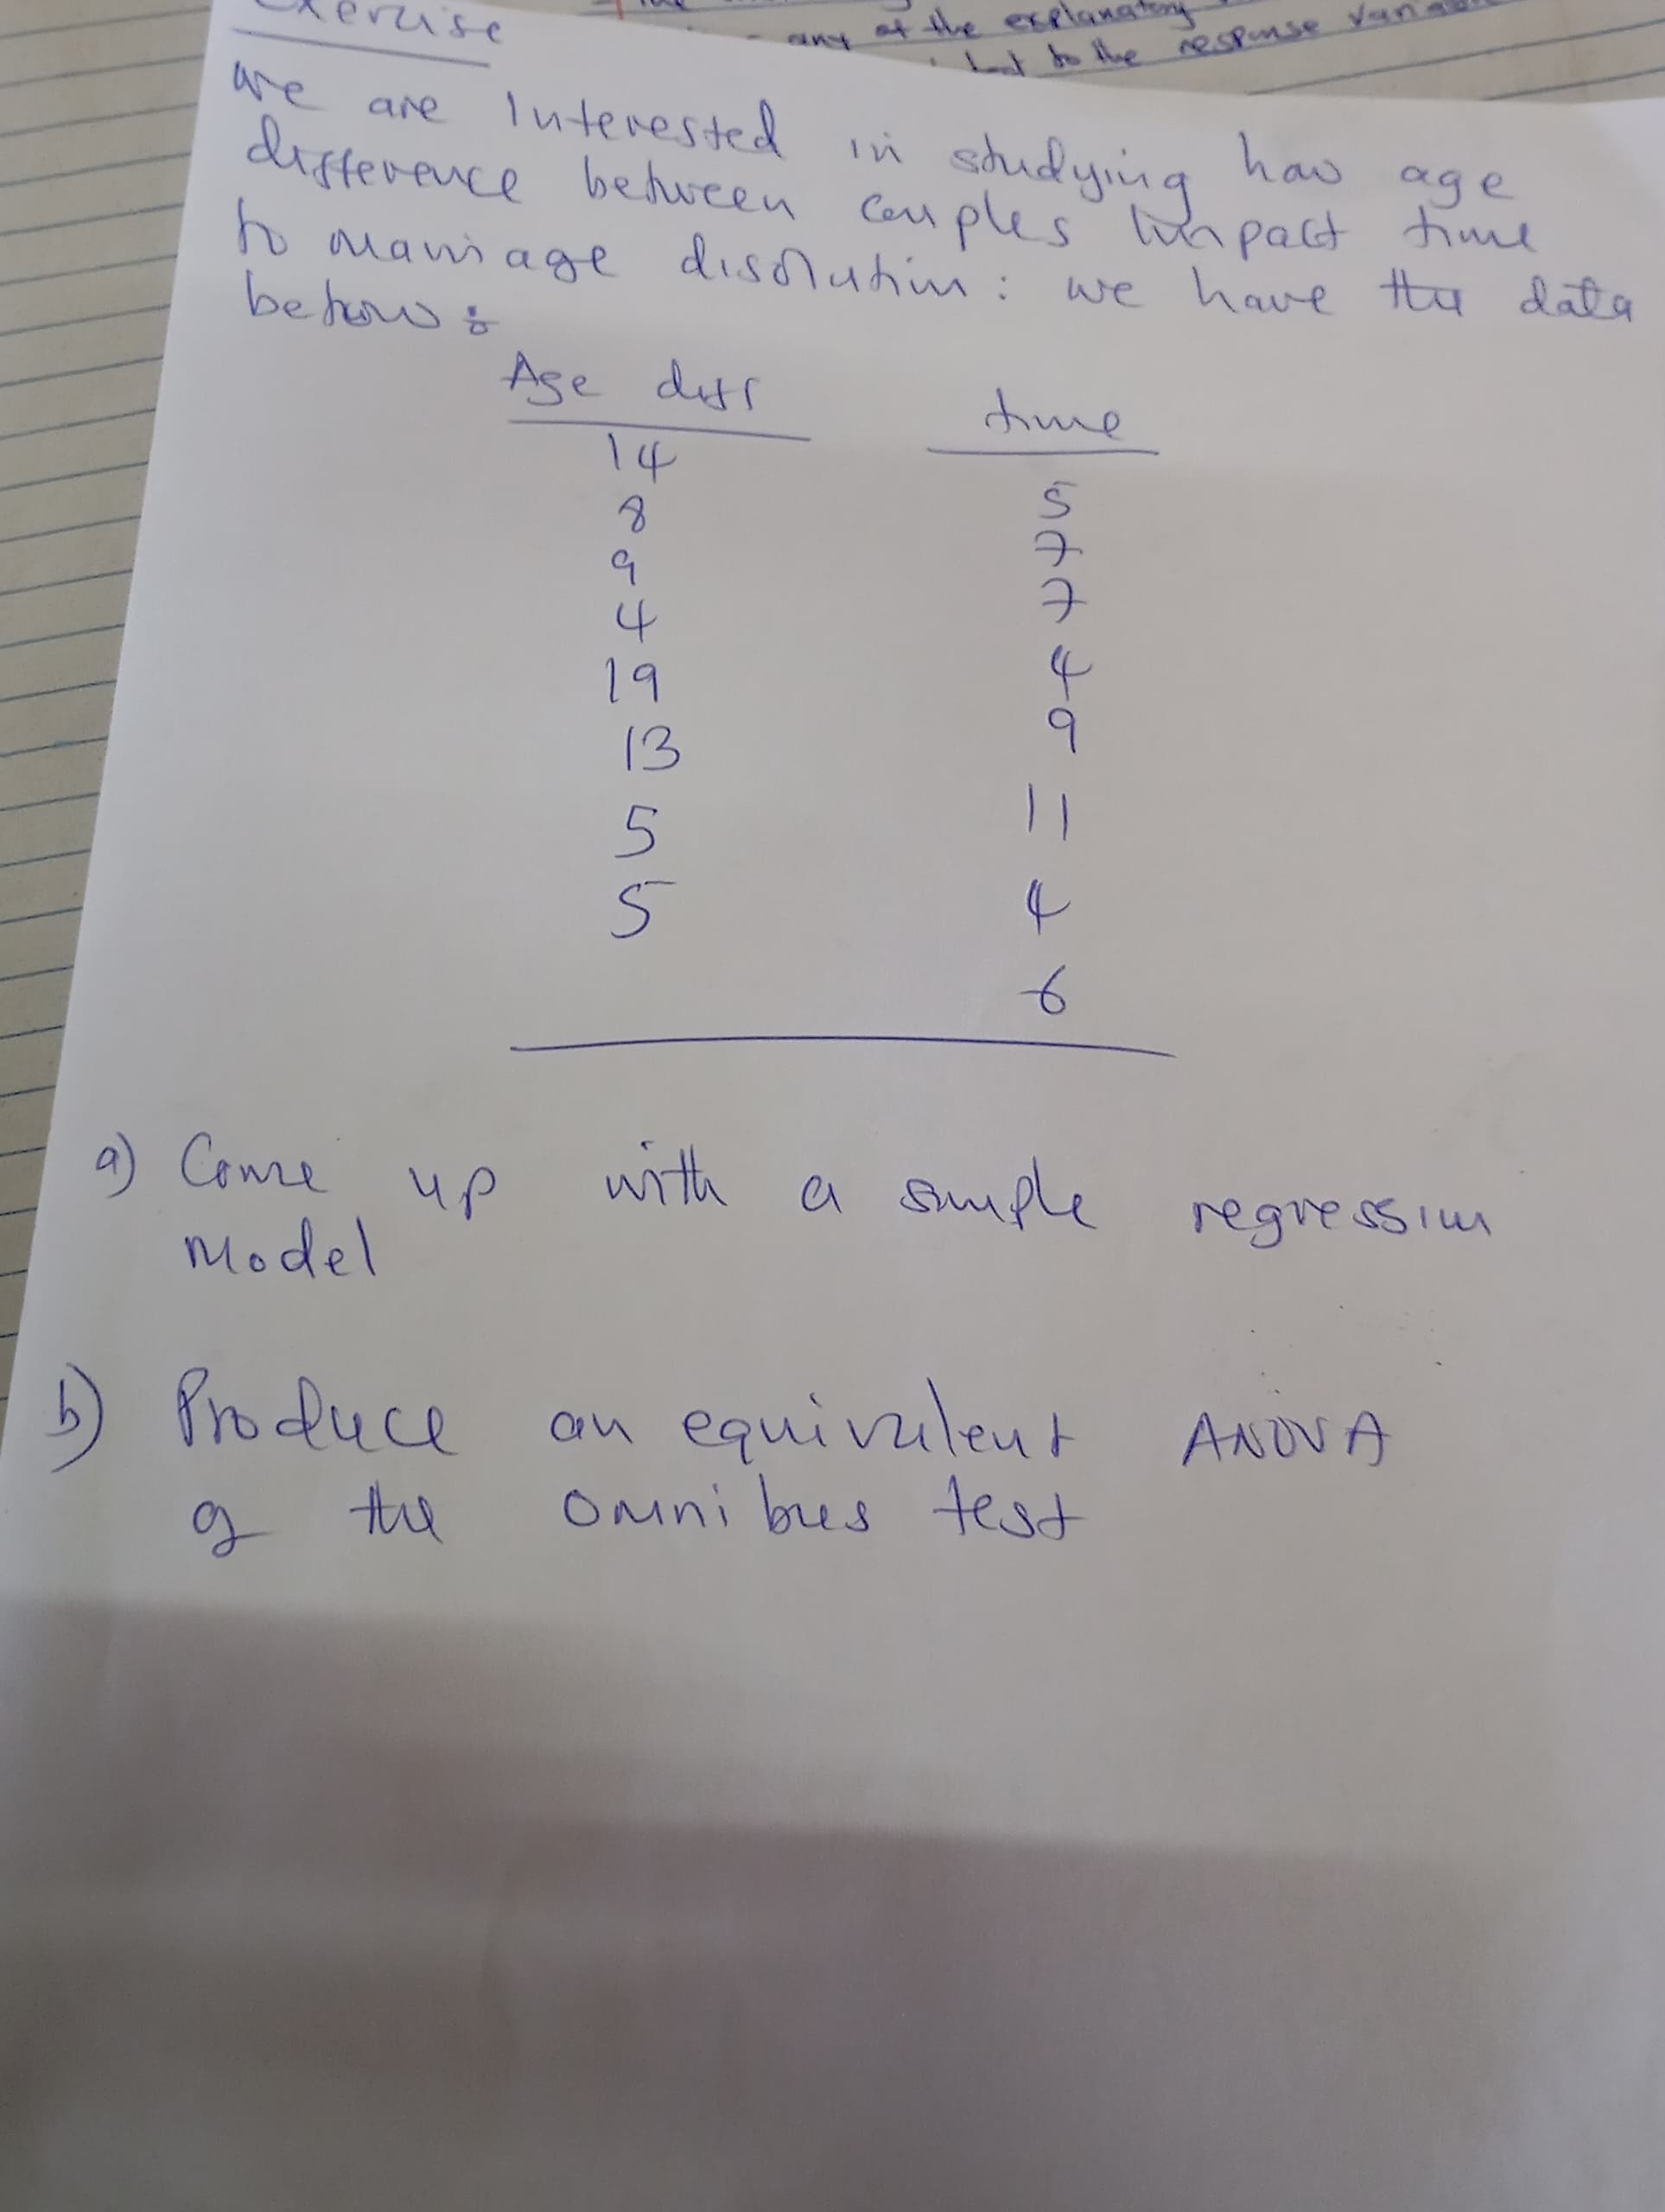 any of the explanatory
to the response
Exercise
We are Interested in studying how age
difference between couples impact time
to marriage disolution: we have the data
below:
Age diff time
14 5
8 7
9 7
4 4
19 9
13 11
5 4
5 6
a) Come up with a simple regression
Model
b) Produce an equivalent ANOVA
of the Omnibus test